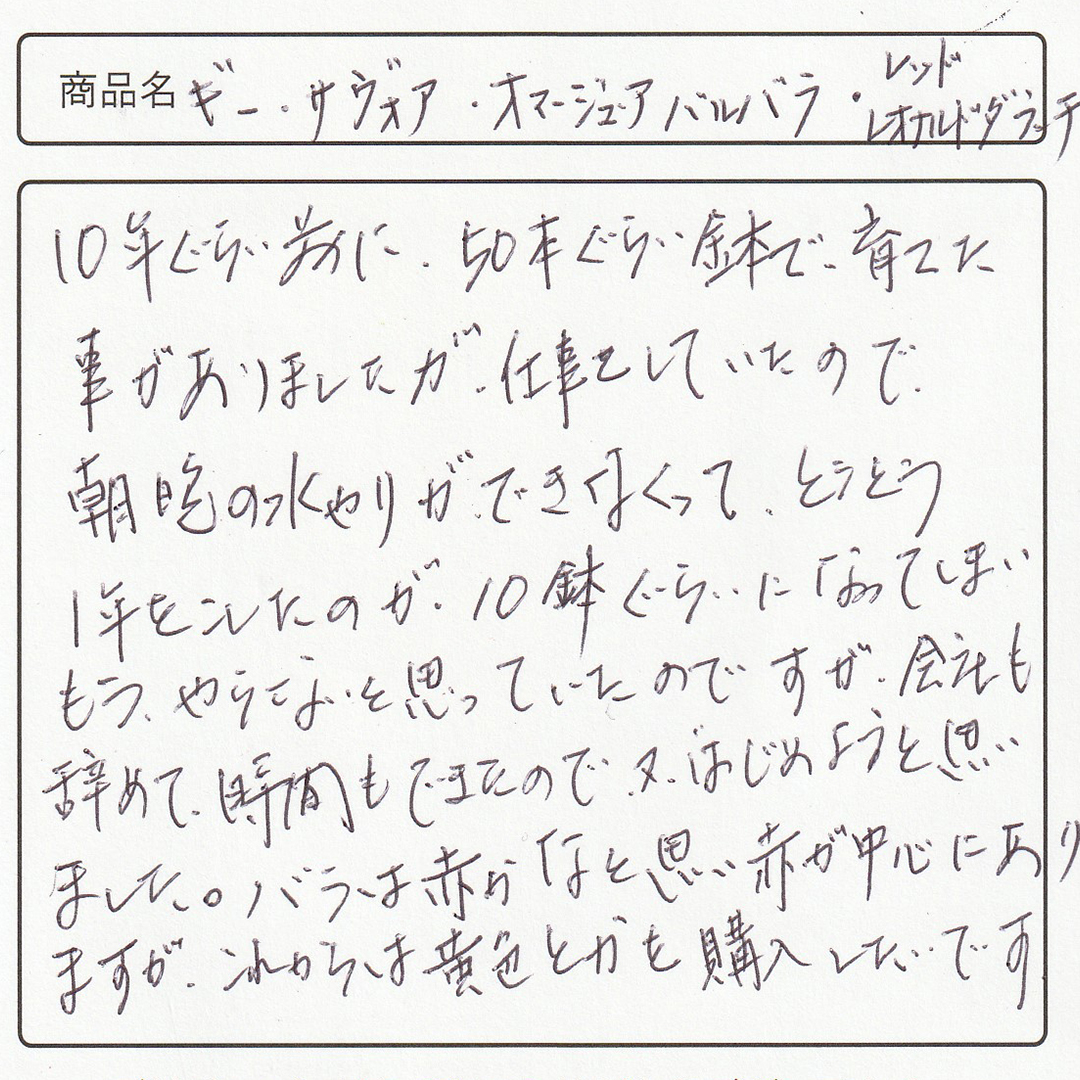 商品名 ギー・サヴォア・オマージュアバルバラ・レッドレオナルドダヴィンチ
10年ぐらい前に、50本ぐらい鉢で、育てた
事がありましたが、仕事をしていたので、
朝晩の水やりができなくって、とうとう
1年をこしたのが、10鉢ぐらいになってしまい
もう、やらないと思っていたのですが、会社も
辞めて、時間もできたので、又、はじめようと思い
ました。バラは赤らなと思い赤が中心にあり
ますが、これからは黄色とかを購入したいです